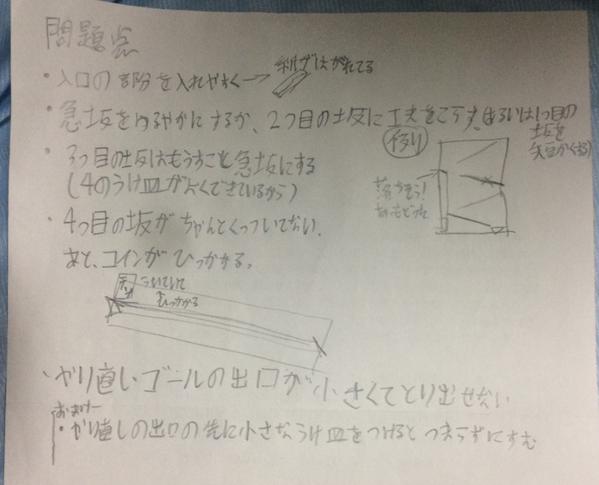 問題点
・入口の部分を入れやすく→ はがれてる
・急坂をゆるやかにするか、2つ目の坂に工夫をこらす。(あるいは1つ目の
坂を
短かくする)
・3つ目の坂はもうすこし急坂にする
(4のうけ皿が広くできているから)
落ちそう!
・4つ目の坂がちゃんとくっついてない。
あと、コインがひっかかる。
ついていて
ひっかかる
・やり直しゴールの出口が小さくてとり出せない
おまけー
・やり直しの出口の先に小さなうけ皿をつけるとつまらずにすむ